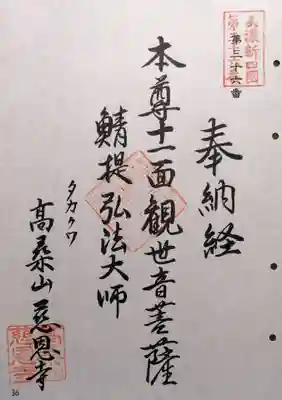 美濃新四国
第三十六番
奉納経
本尊十一面観世音菩薩
鯖提弘法大師
タカクワ
高桑山慈恩寺
36